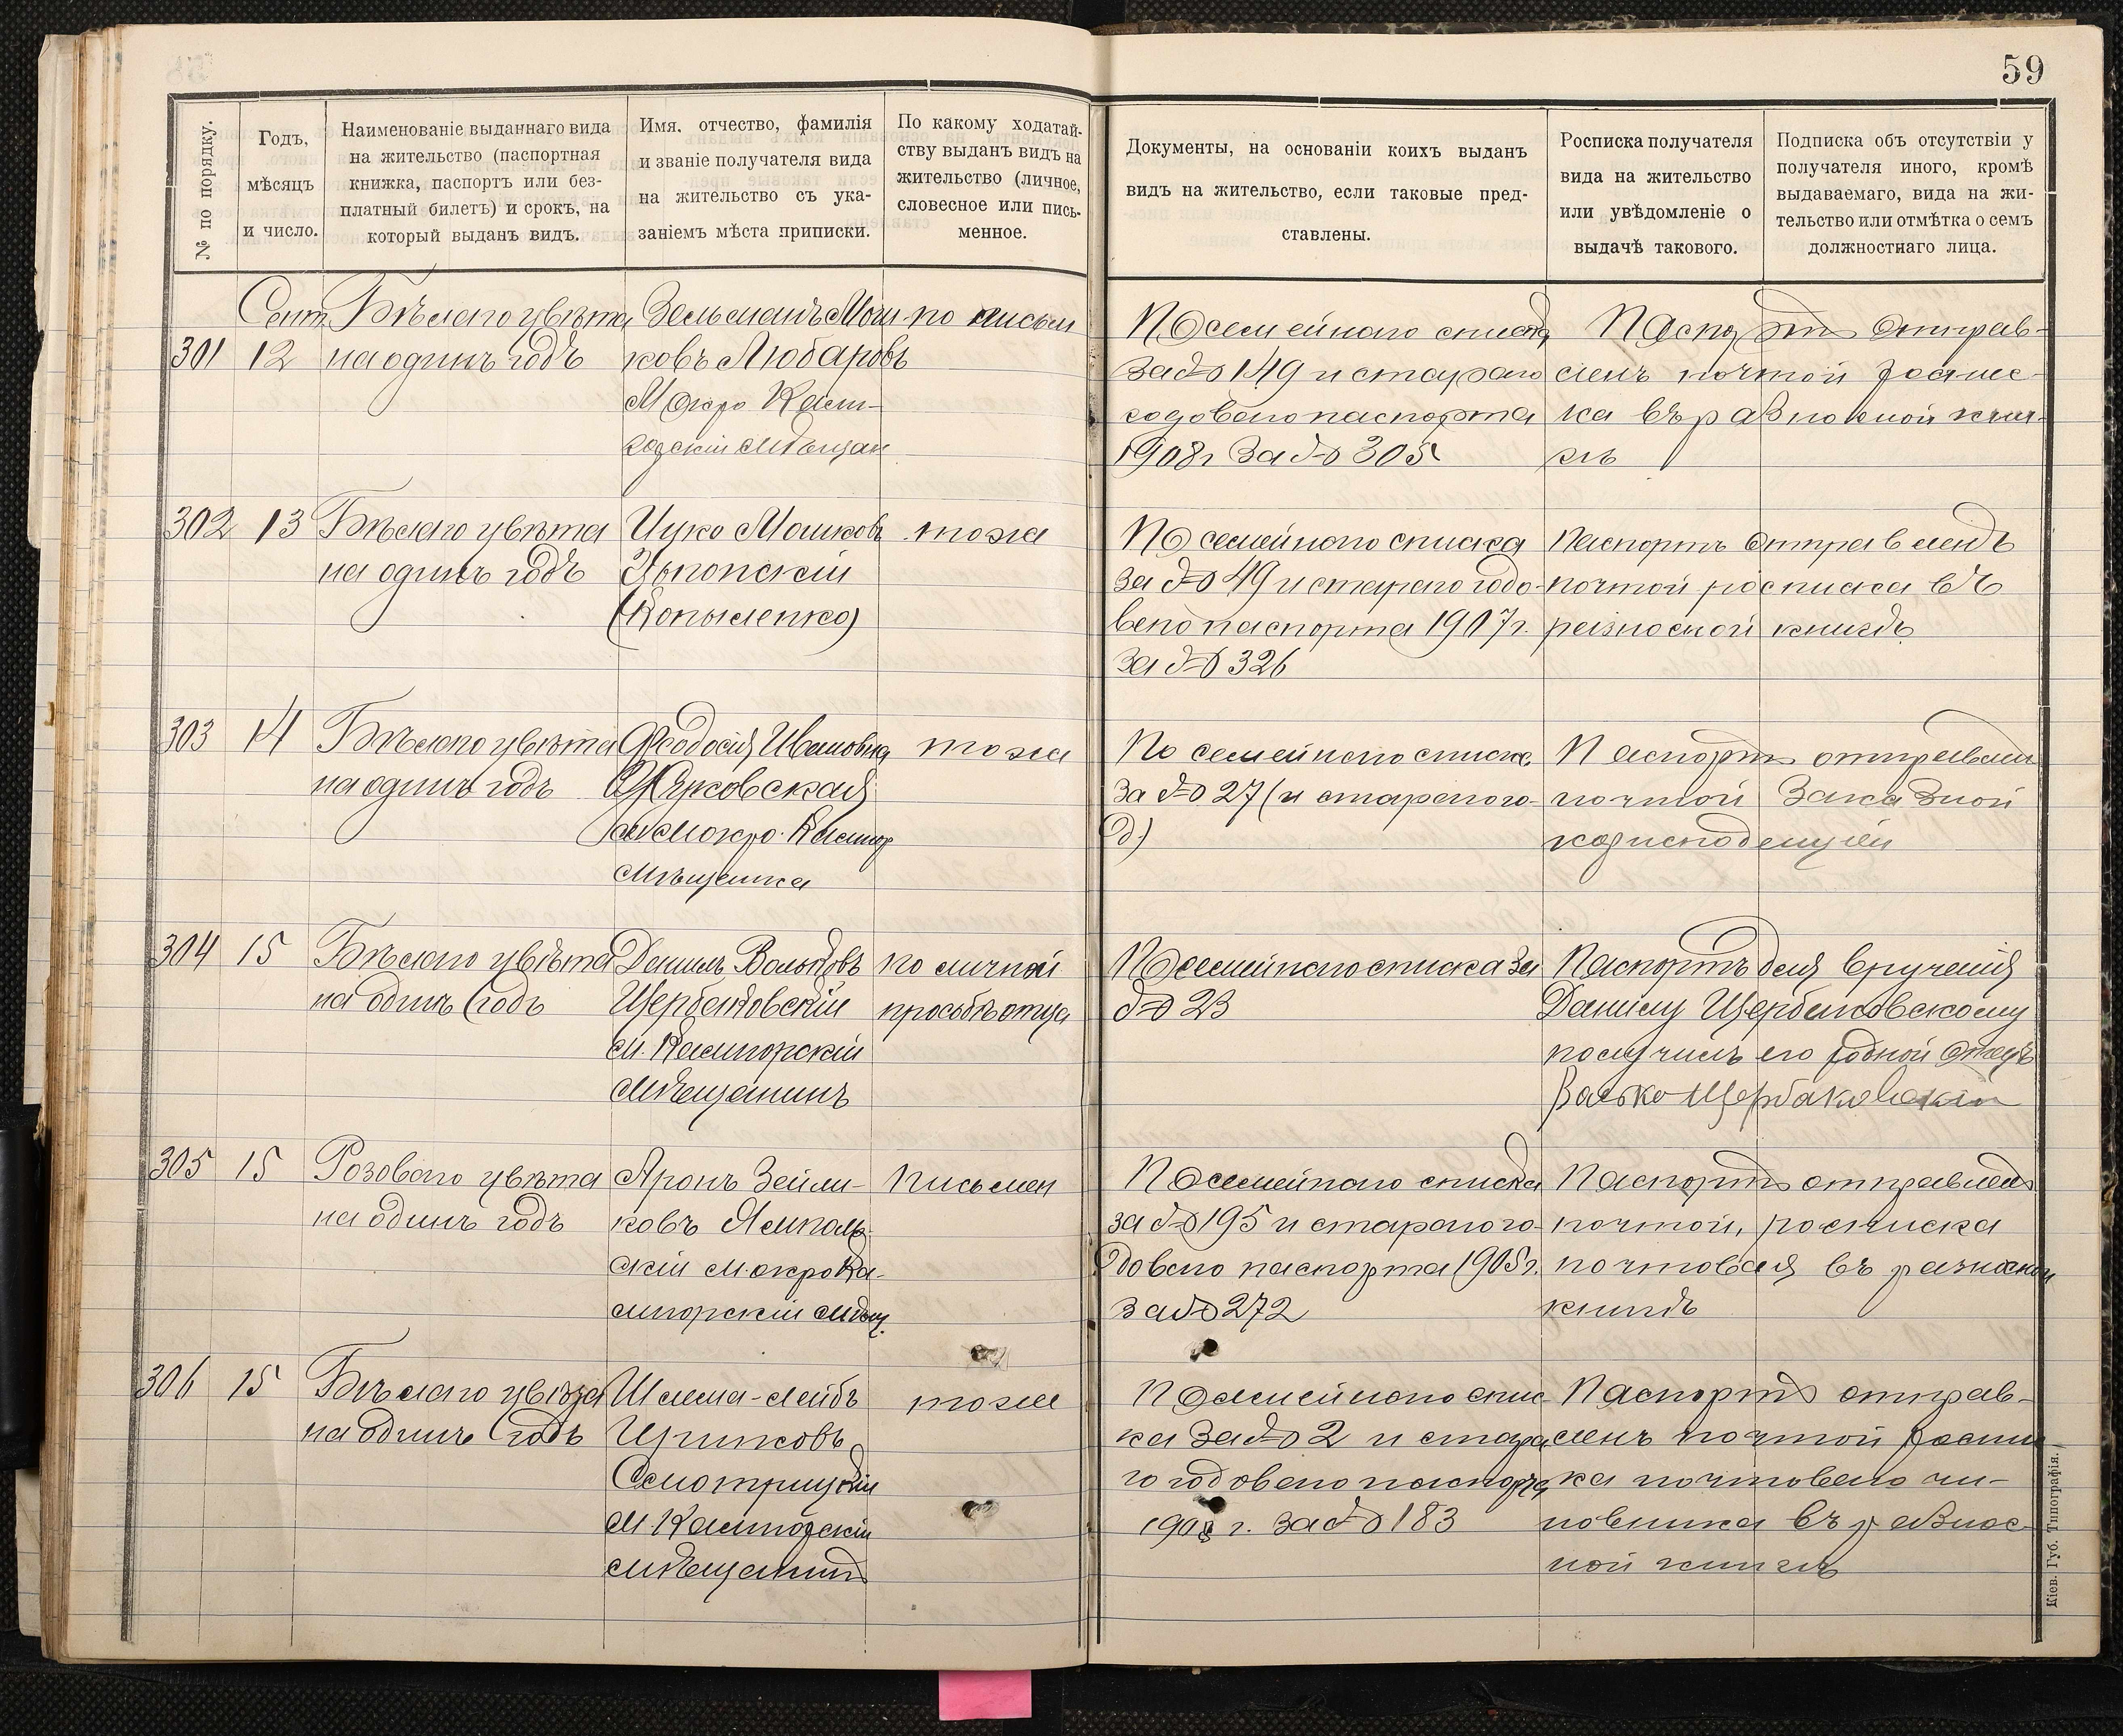 59
№ по порядку.
Годъ,
мѣсяцъ
и число.
Наименованіе выданнаго вида
на жительство (паспортная
книжка, паспортъ или без-
платный билетъ) и срокъ, на
который выданъ видъ.
Имя, отчество, фамилія
и званіе получателя вида
на жительство съ ука-
заніемъ мѣста приписки.
По какому ходатай-
ству выданъ видъ на
жительство (личное,
словесное или пись-
менное.
Документы, на основаніи коихъ выданъ
видъ на жительство, если таковые пред-
ставлены.
Росписка получателя
вида на жительство
или увѣдомленіе о
выдачѣ такового.
Подписка объ отсутствіи у
получателя иного, кромѣ
выдаваемаго, вида на жи-
тельство или отмѣтка о семъ
должностнаго лица.
301
Сент
12
Бѣлаго цвѣта
на одинъ годъ
Зельманъ Мош-
ковъ Любаровъ
Мокро Калы-
горскій Мѣщан
по письм
По семейнаго списка
за № 149 и стараго
годоваго паспорта
1908 г за № 305
Паспортъ отправ-
ленъ почтой роспис-
ка въ разносной кни-
гѣ
302
13
Бѣлаго цвѣта
на одинъ годъ
Ицко Мошковъ
(Копыленко)
тоже
По семейнаго списка
за № 49 и стараго годо-
ваго паспорта 1907 г.
за № 326
Паспортъ отправленъ
почтой росписка въ
разносной книгѣ
303
14
Бѣлаго цвѣта
на одинъ годъ
Феодосія Ивановна
Мокро. Калигор
Мѣщанка
тоже
По семейнаго списка
за № 27 (и стараго го-
д.)
Паспортъ отправлен
почтой заказной
корисподенціи
304
15
Бѣлаго цвѣта
на одинъ годъ
Данилъ Вольковъ
Щербаковскій
М. Калигорскій
Мѣщанинъ
по личной
просьбѣ отца
По семейнаго списка за
№ 23
Паспортъ для врученія
Данилу Щербаковскому
получилъ его родной отецъ
Валько Щербаковскій
305
15
Розоваго цвѣта
на одинъ годъ
Аронъ Зейли-
ковъ Ямполь-
скій Мокро Ка-
лигорскій Мѣщ.
Письмен
По семейнаго списка
за № 195 и стараго го-
доваго паспорта 1908 г.
за № 272
Паспортъ отправленъ
почтой, росписка
почтовая въ разносной
книгѣ
306
15
Бѣлаго цвѣта
на одинъ годъ
Шлема-Лейбъ
Смотрицкій
М. Калигорскій
Мѣщанинъ
тоже
По семейнаго спис-
ка за № 2 и стара
го годоваго паспорта
1908 г. за № 183
Паспортъ отправ-
ленъ почтой роспи
ка почтоваго чи-
новника въ разнос-
ной книгѣ
Кіев. Губ. Типографія.